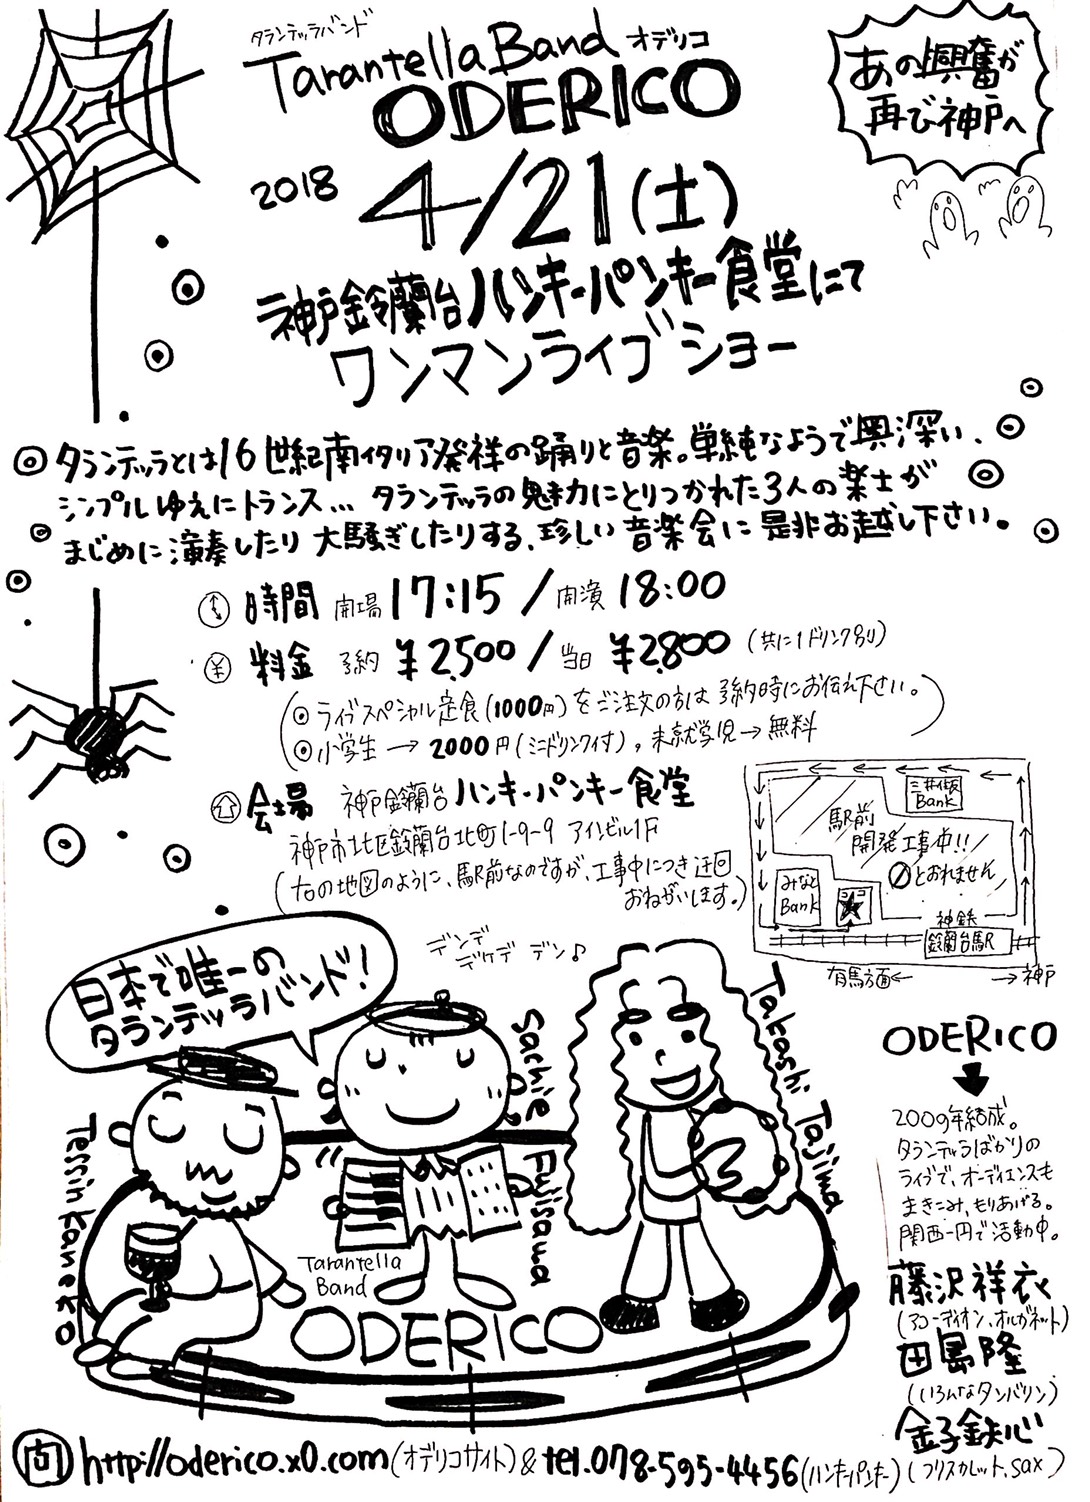 タランテッラバンド
Tarantella Band オデリコ
ODERICO
あの興奮が
再び神戸へ
2018 4/21(土)
神戸鈴蘭台ハンキーパンキー食堂にて
ワンマンライブショー
タランテッラとは16世紀南イタリア発祥の踊りと音楽。単純なようで奥深い、
シンプルゆえにトランス... タランテッラの魅力にとりつかれた3人の楽士が
まじめに演奏したり大騒ぎしたりする、珍しい音楽会に是非お越し下さい。
時間 開場17:15/開演18:00
¥ 料金 予約 ¥2,500/当日 ¥2,800 (共に1ドリンク別)
(◎ライブスペシャル定食(1000円)をご注文の方は予約時にお伝え下さい。
◎小学生→2000円(ミニドリンク付)，未就学児→無料)
会場 神戸鈴蘭台ハンキーパンキー食堂
神戸市北区鈴蘭台北町1-9-9 アインビル1F
(右の地図のように、駅前なのですが、工事中につき迂回
おねがいします。)
三井住友
Bank
駅前
開発工事中!!
とおれません
みなと
Bank
ココ
神鉄
鈴蘭台駅
有馬方面← →神戸
デンデ
デケデ デン♪
日本で唯一の
タランテッラバンド!
Tessin Kaneko
Sachie Fujisawa
Takashi Tajima
Tarantella
Band
ODERICO
ODERICO
2009年結成。
タランテッラばかりの
ライブで、オーディエンスも
まきこみ、もりあげる。
関西一円で活動中。
藤沢祥衣
(アコーディオン、オルガネット)
田島隆
(いろんなタンバリン)
金子鉄心
(フリスカレット、sax)
問 http://oderico.x0.com(オデリコサイト)& tel.078-595-4456(ハンキーパンキー)